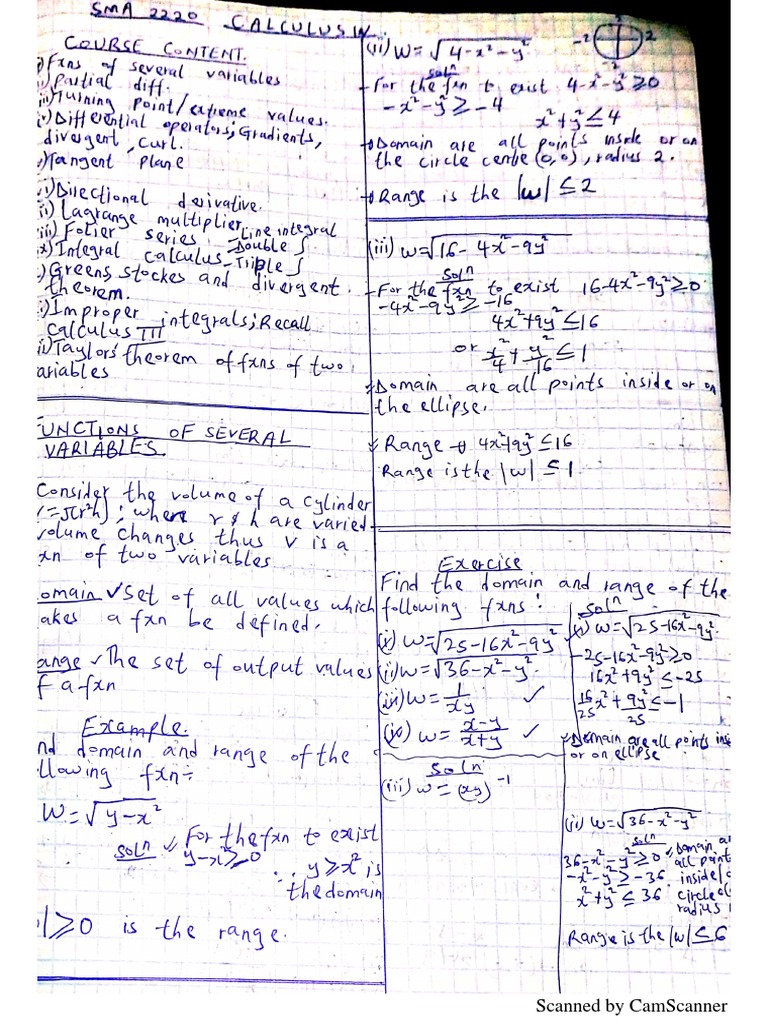 SMA 2220 CALCULUS IV
COURSE CONTENT.
Fxns of several variables
Partial diff.
Turning point/extreme values.
Differential operators; Gradients,
divergent, Curl.
Tangent plane
Directional derivative.
Lagrange multiplier
Folier series - Line integral
Integral calculus - Double ∫
Triple ∫
Greens, stockes and divergent
theorem.
Improper integrals; Recall
Calculus III
Taylors theorem of fxns of two
ariables
UNCTIONS OF SEVERAL
VARIABLES.
Consider the volume of a cylinder
(=π(r²h); where r & h are varied
volume changes thus v is a
xn of two variables
omain ✓ set of all values which
akes a fxn be defined.
ange ✓ The set of output values
f a fxn
Example.
nd domain and range of the
llowing fxn:-
W=√y-x²
soln ✓ For the fxn to exist
y-x²≥0 ∴ y≥x² is
the domain
|≥0 is the range.
(ii) W=√4-x²-y²
-2 2
-2
soln
- For the fxn to exist 4-x²-y²≥0
-x²-y²≥-4
x²+y²≤4
Domain are all points inside or on
the circle centre (0,0), radius 2.
Range is the |w|≤2
(iii) W=√16-4x²-9y²
soln
- For the fxn to exist 16-4x²-9y²≥0
-4x²-9y²≥-16
4x²+9y²≤16
or x²/4+y²/16≤1
Domain are all points inside or on
the ellipse.
✓ Range → 4x²+9y²≤16
Range is the |w|≤1
Exercise
Find the domain and range of the
following fxns:
(i) W=√25-16x²-9y²
(ii) W=√36-x²-y².
(iii) W=1/xy ✓
(iv) W=x-y/x+y ✓
soln
(iii) W=(xy)⁻¹
soln
(i) W=√25-16x²-9y²
-25-16x²-9y²≥0
16x²+9y²≤-25
16x²/25+9y²/25≤-1
Domain are all points ins
or on ellipse
(ii) W=√36-x²-y²
soln
36-x²-y²≥0 ✓ Domain a
-x²-y²≥-36 all point
x²+y²≤36 inside/
circle c
radius
Range is the |w|≤6
Scanned by CamScanner